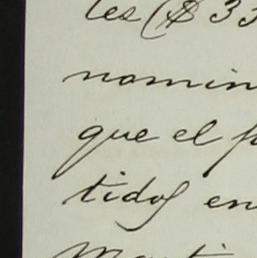 tes ($33
nomin
que el p
tidos en